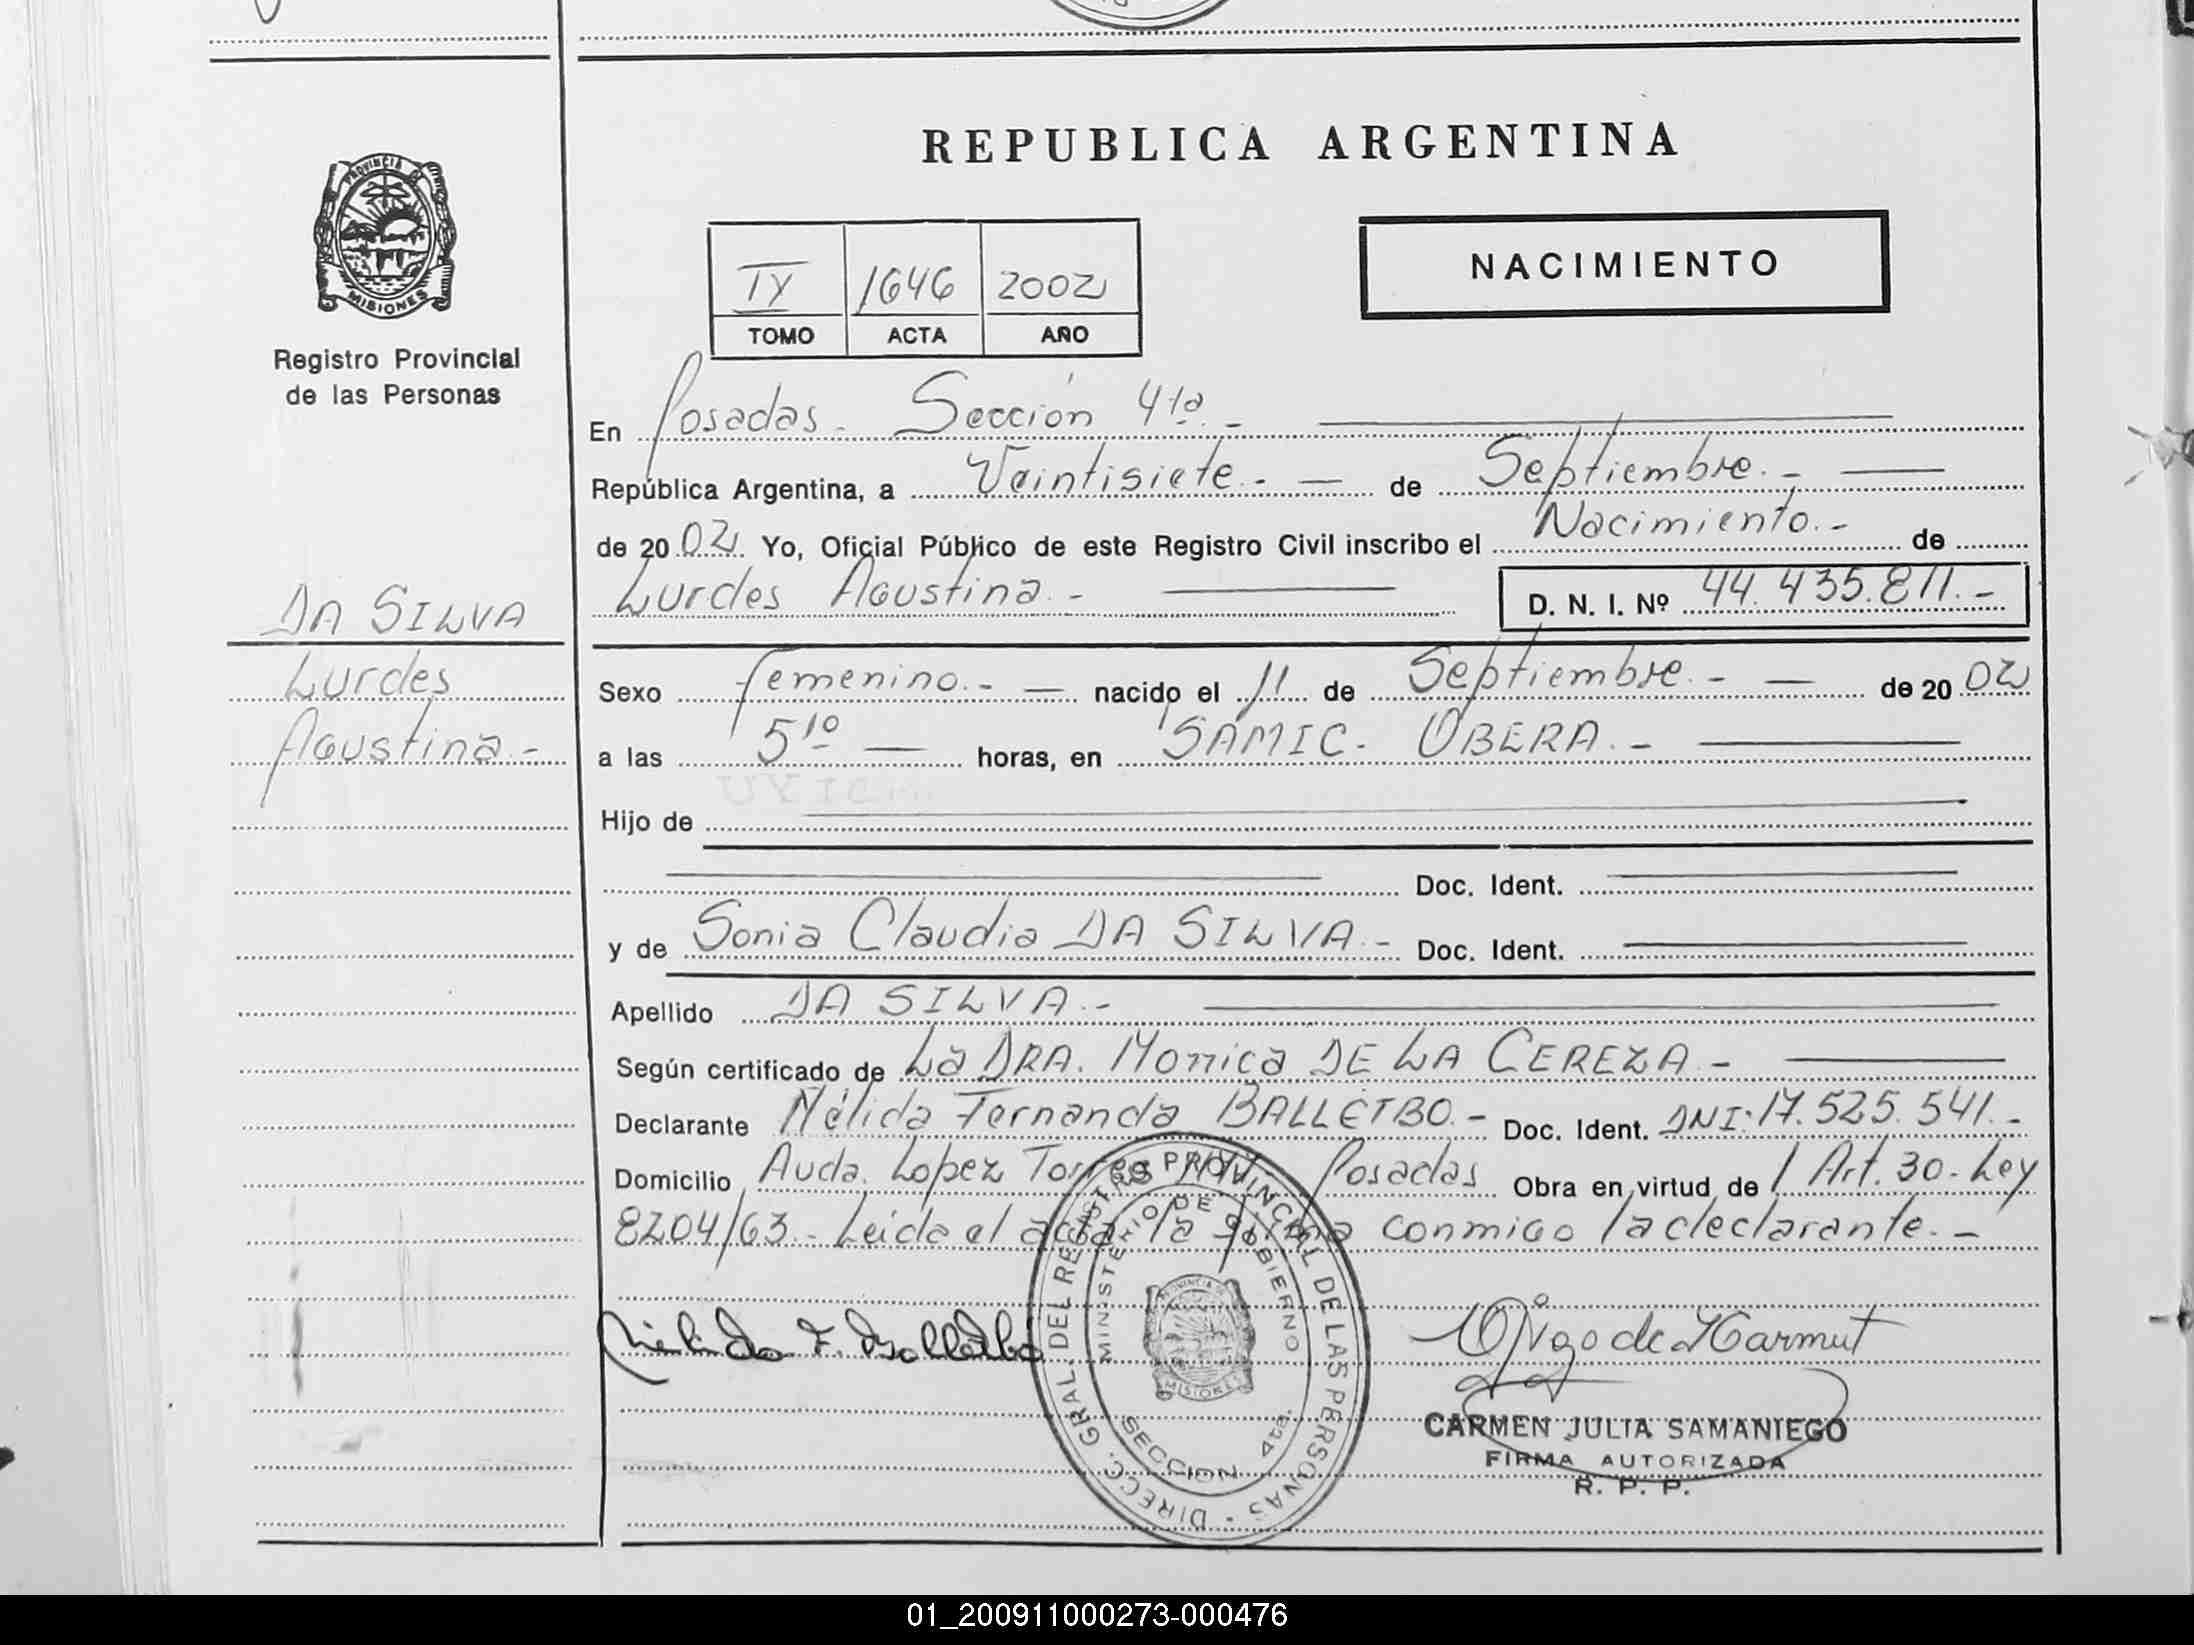 REPUBLICA ARGENTINA
PROVINCIA DE
MISIONES
Registro Provincial
de las Personas
DA SILVA
Lurdes
Agustina.-
NACIMIENTO
IV 1646 2002
TOMO ACTA AÑO
En Posadas - Sección 4ta.-
República Argentina, a Veintisiete.- de Septiembre.-
de 2002. Yo, Oficial Público de este Registro Civil inscribo el Nacimiento.- de
Lurdes Agustina.- D. N. I. Nº 44.435.811.-
Sexo femenino.- nacido el 11 de Septiembre.- de 2002
a las 5 10 horas, en SAMIC- OBERA.-
Hijo de
Doc. Ident.
y de Sonia Claudia DA SILVA.- Doc. Ident.
Apellido DA SILVA.-
Según certificado de La DRA. Monica DE LA CEREZA.-
Declarante Nélida Fernanda BALLETBO.- Doc. Ident. DNI: 17.525.541.-
Domicilio Avda. Lopez Torres Posadas Obra en virtud de l Art. 30- Ley
8204/63.- Leida el acta la firma conmigo la declarante.-
Nélida F. Balletbó
DIRECC. GRAL. DEL REGISTRO PROVINCIAL DE LAS PERSONAS
MINISTERIO DE GOBIERNO
PROVINCIA DE
MISIONES
SECCION 4ta.
CARMEN JULIA SAMANIEGO
FIRMA AUTORIZADA
R. P. P.
01_200911000273-000476